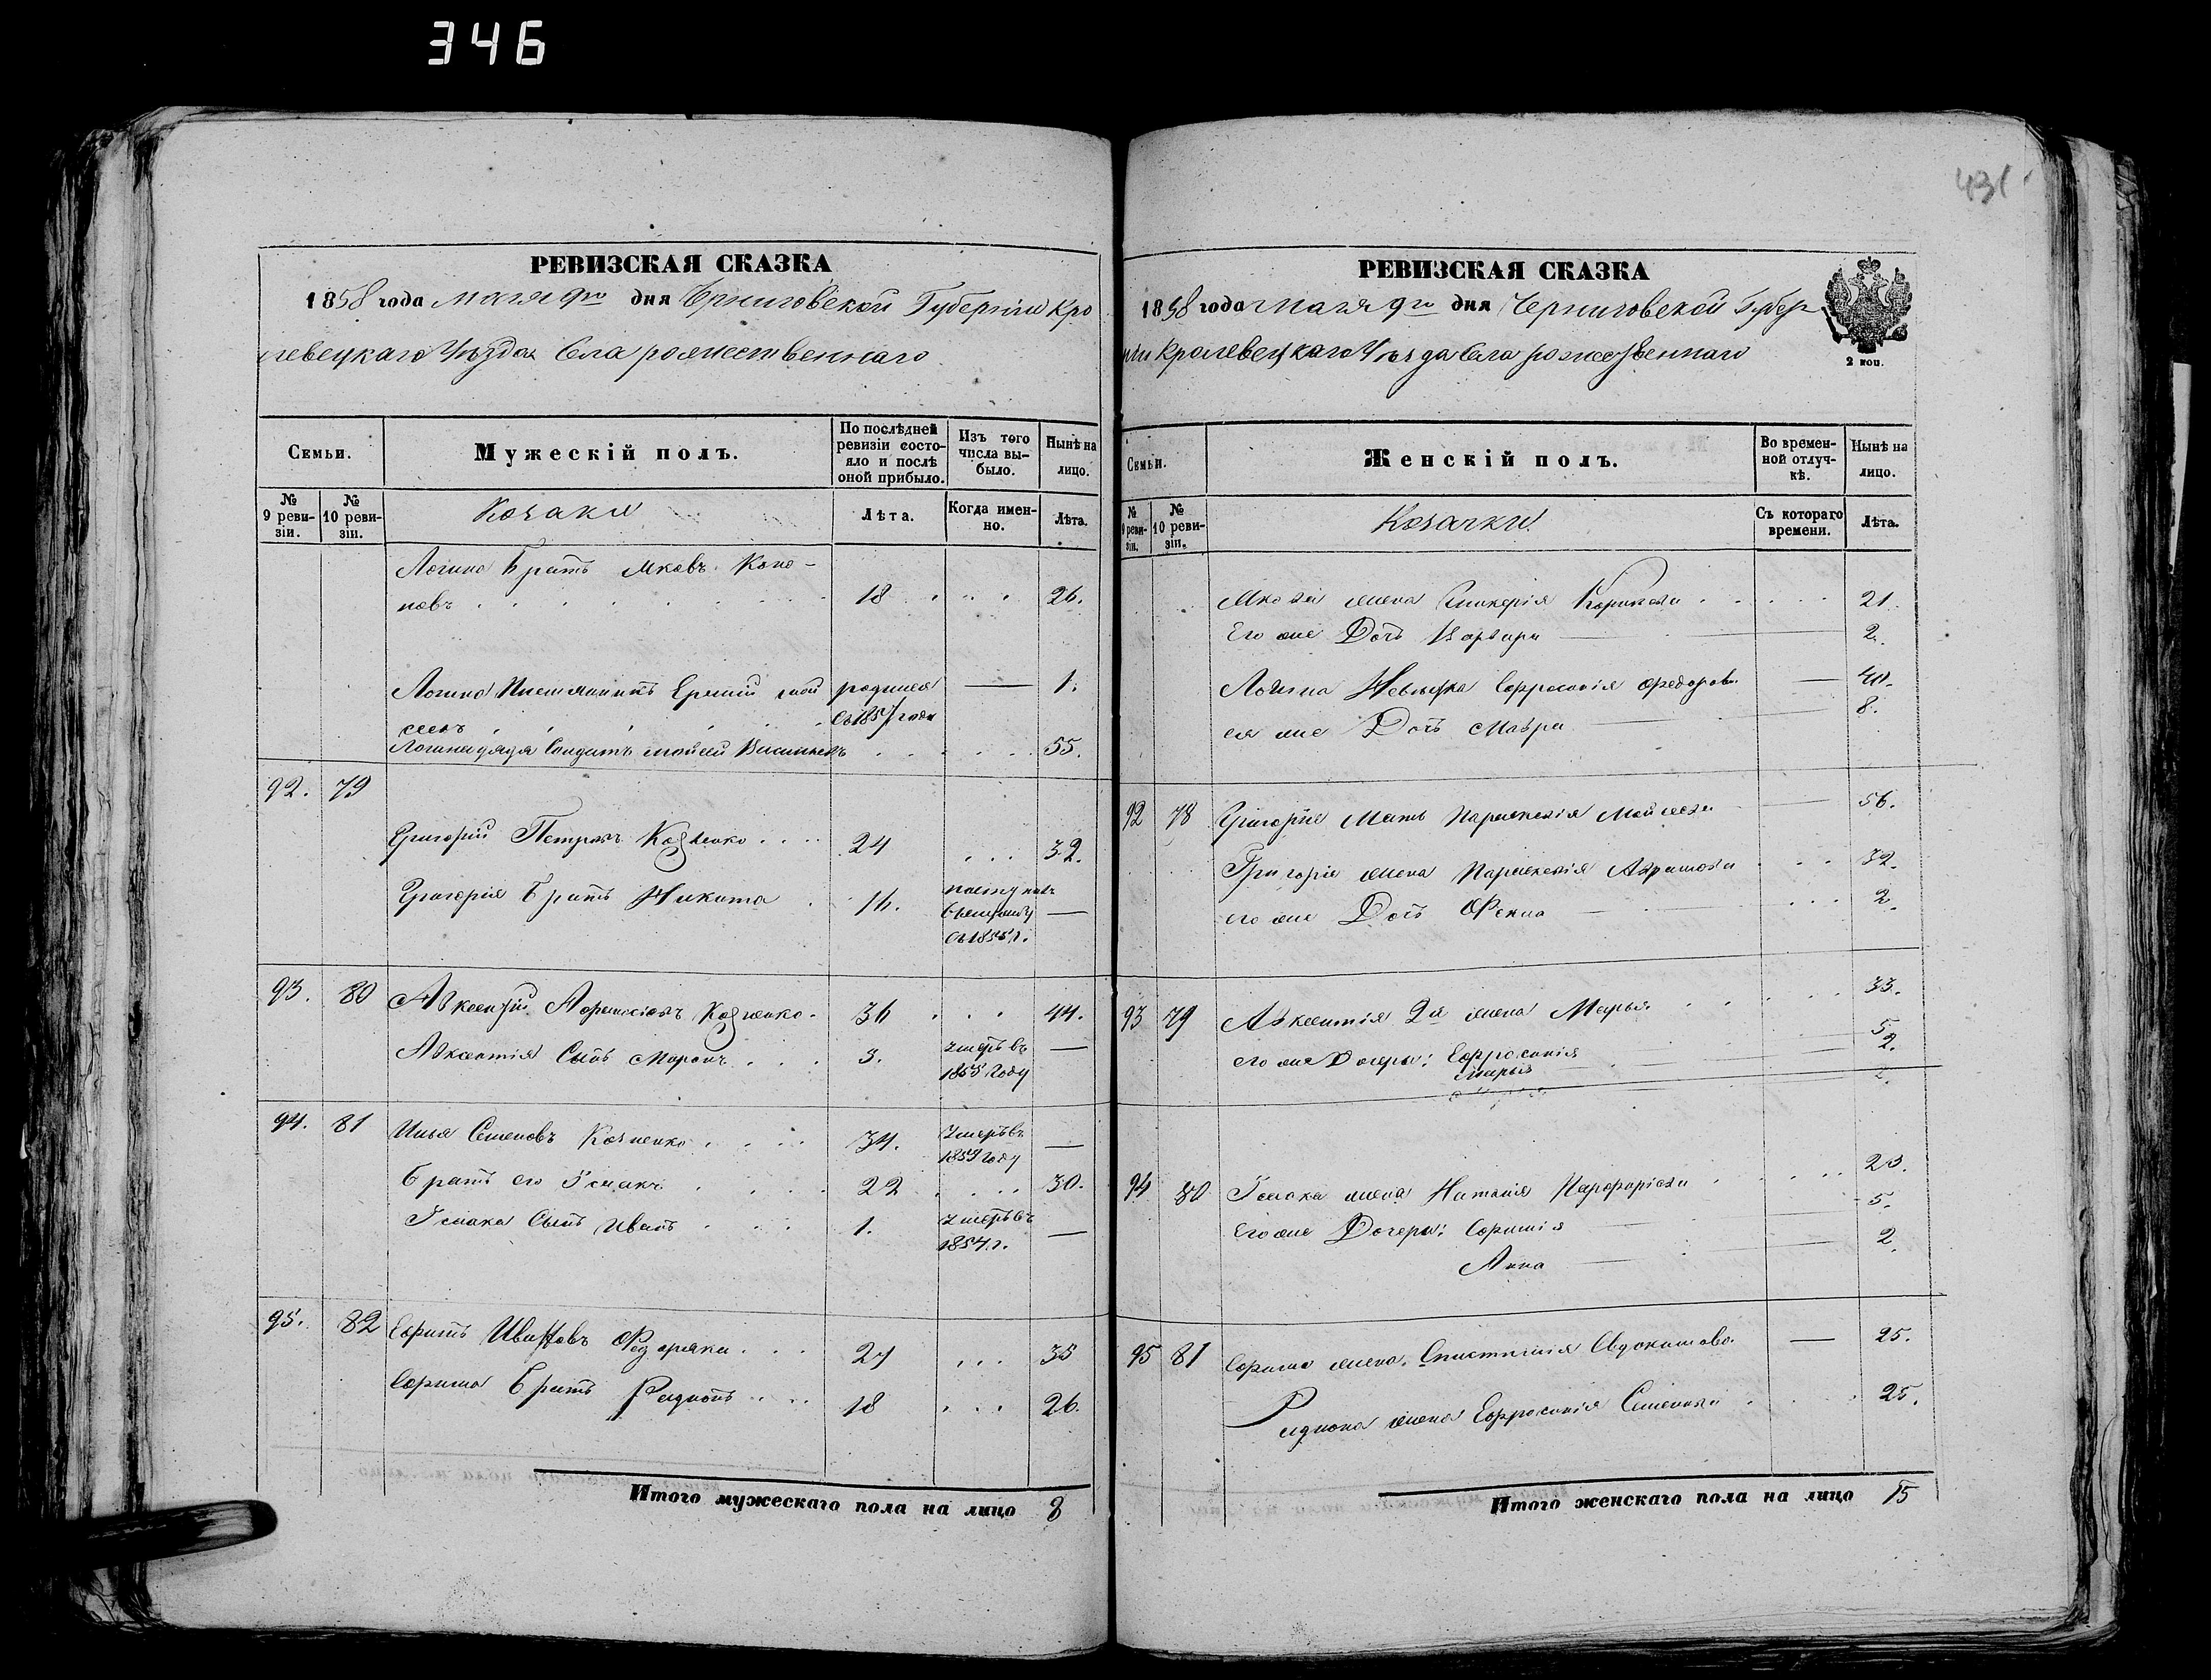 346
431
РЕВИЗСКАЯ СКАЗКА
1858 года мая 9го дня Черниговской Губернии Кро
левецкаго Уѣзда Села рожественнаго
Семьи.
Мужескій полъ.
По послѣдней ревизіи состо-
яло и послѣ оной прибыло.
Изъ того числа вы-
было.
Нынѣ на лицо.
№ 9 реви-
зіи.
№ 10 реви-
зіи.
Козаки
Лѣта.
Когда имен-
но.
Лѣта.
Логина Братъ Яковъ Коно-
новъ 18 26.
Логина Племянникъ родился 1.
съ 1857 года
Логина дядя Солдатъ 55.
92. 79
Григорий Петровъ Козленко 24 32.
Григория Братъ Никита 16. —
93. 80 Авксентий Козленко 36 44.
Авксентія Сынъ 3. умеръ въ —
1855 году
94. 81 Илья Семеновъ 34. умеръ въ —
году
Братъ его Исаакъ 22 30.
Исаака Сынъ Иванъ 1. умеръ въ —
1854 г.
95. 82 Ефимъ Ивановъ 27 35
Ефима Братъ Радионъ 18 26.
Итого мужескаго пола на лицо 8
РЕВИЗСКАЯ СКАЗКА
1858 года мая 9го дня Черниговской Губер
нии Кролевецкаго Уѣзда Села рожественнаго
2 коп.
Семьи.
Женскій полъ.
Во времен-
ной отлуч-
кѣ.
Нынѣ на лицо.
№ 9 реви-
зіи.
№ 10 реви-
зіи.
Козачки
Съ котораго времени.
Лѣта.
Якова жена Гликерія 21.
Его же Дочь Варвара 2.
Логина Невѣстка Ефросинія Федорова — 40.
ея же Дочь Мавра 8.
92 78 Григорія Мать Параскевія — 56.
Григорія жена Параскевія 32.
его же Дочь Фекла 2.
93 79 Авксентія 2я жена Марья 33.
его же Дочери: Ефросинія 5.
Марья 2.
94 80 Исаака жена Наталія 23.
Его же Дочери: Ефимія 5.
Анна 2.
95 81 Ефима жена — 25.
Радиона жена Ефросинія Семенова 25.
Итого женскаго пола на лицо 15